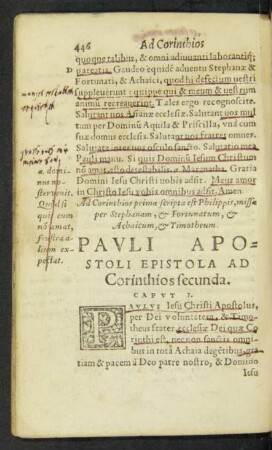 446 Ad Corinthios
quoque talibus, & omni adiuuanti laborantiq;
D pareatis. Gaudeo equidē aduentu Stephanæ &
Fortunati, & Achaici, quod hi defectum uestri
suppleuerunt: quippe qui & meum & uestrum
animū recreauerint. Tales ergo recognoscite.
Salutant uos Asianæ ecclesiæ. Salutant uos mul
tum per Dominū Aquila & Priscilla, vnà cum
suæ domus ecclesia. Salutant uos fratres omnes.
Salutate inuicem osculo sancto. Salutatio mea
Pauli manu. Si quis Dominū Iesum Christum
nō amat, esto detestabilis: Maranatha. Gratia
Domini Iesu Christi uobis adsit. Meus amor
in Christo Iesu uobis omnibus adsit. Amen.
Ad Corinthios prima scripta est Philippis, missa
per Stephanam, & Fortunatum, &
Achaicum, & Timotheum.
a. domi
nus no-
ster uenit.
Quid si
quis eum
nō amat,
frustra a-
lium ex-
pectat.
PAVLI APO-
STOLI EPISTOLA AD
Corinthios secunda.
CAPVT I.
PAVLVS Iesu Christi Apostolus,
per Dei voluntatem, & Timo-
theus frater, ecclesiæ Dei quæ Co
rinthi est, necnon sanctis omni-
bus in tota Achaia degētibus, gra
tiam & pacem à Deo patre nostro, & Domino
Iesu